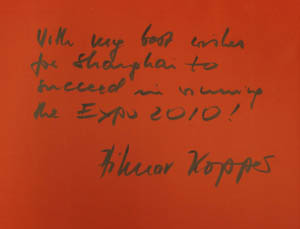 With my best wishes
for Shanghai to
succeed in winning
the Expo 2010!
Hilmar Kopper